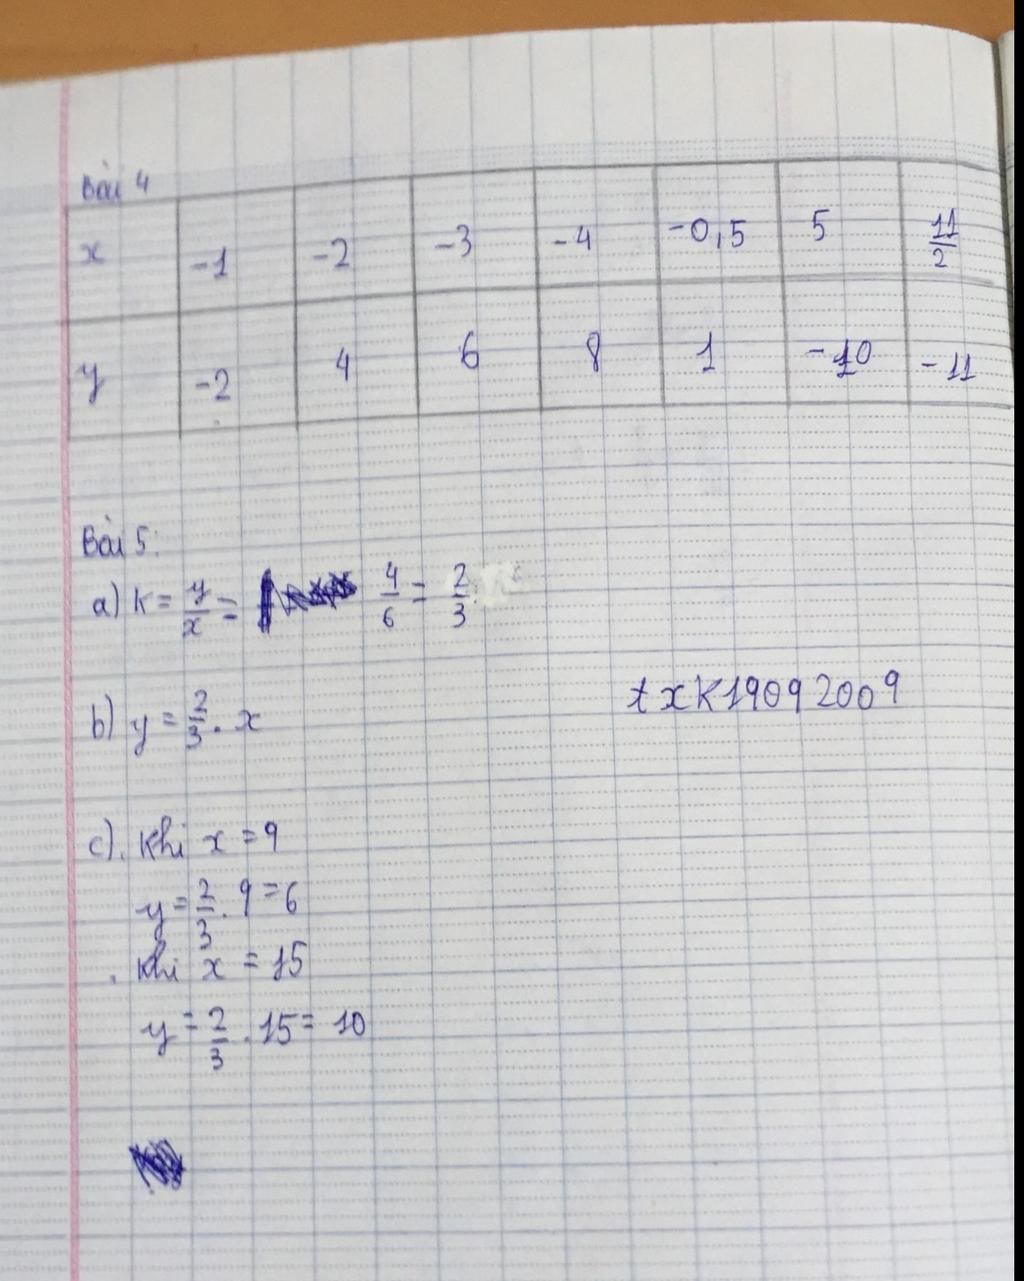 Bài 4
x -1 -2 -3 -4 -0,5 5 11/2
y -2 4 6 8 1 -10 -11
Bài 5:
a) K = y/x = 4/6 = 2/3
b) y = 2/3 . x
txK19092009
c). Khi x = 9
y = 2/3 . 9 = 6
. Khi x = 15
y = 2/3 . 15 = 10